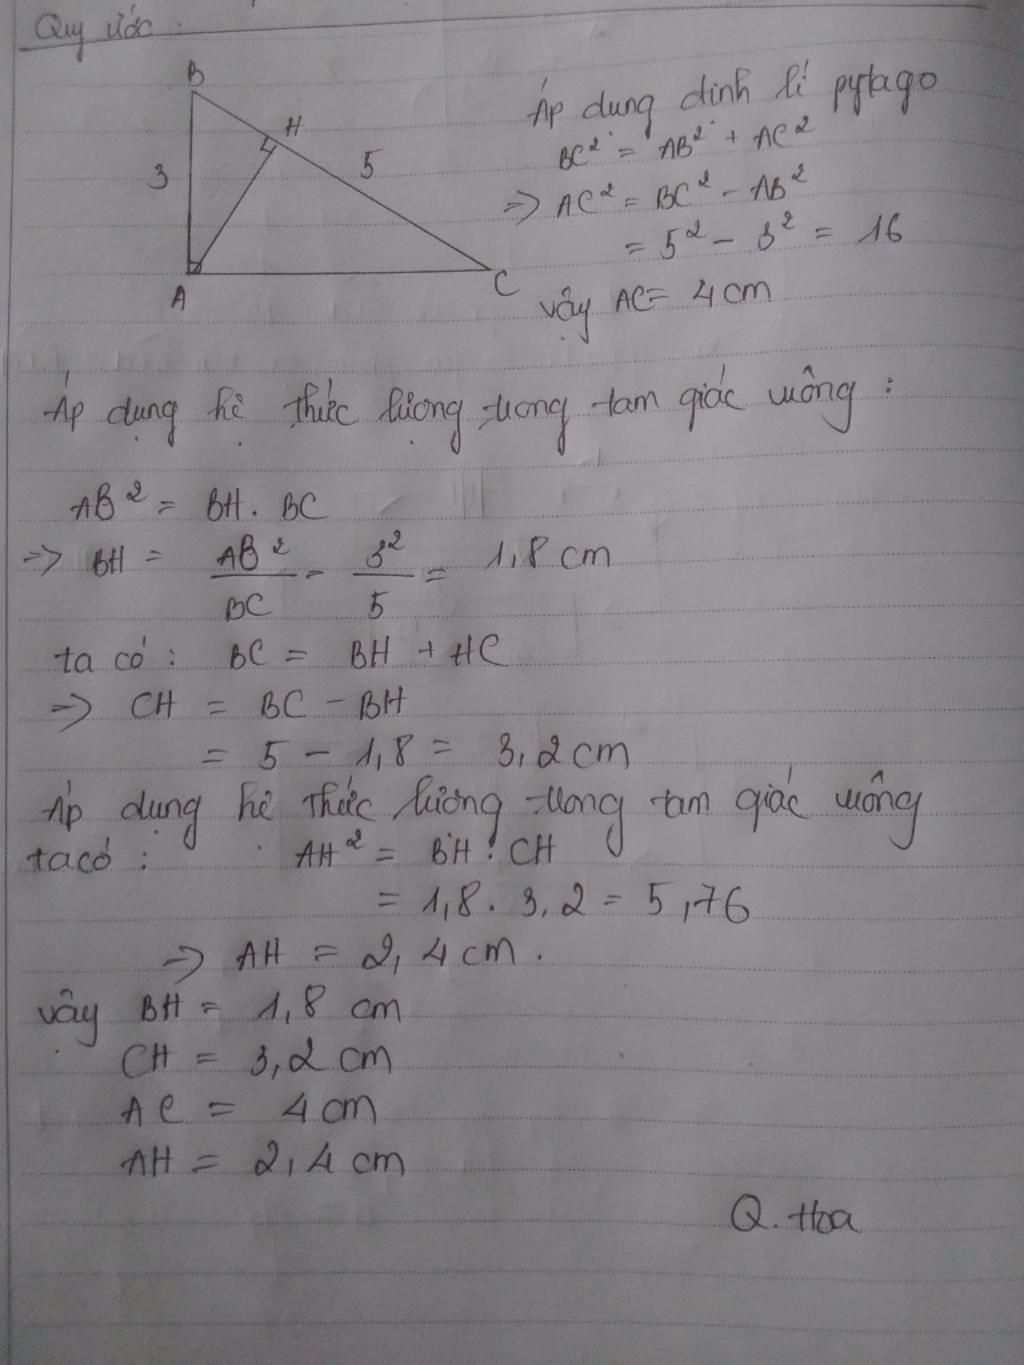 Quy ước
B
H
3
5
A
C
Áp dung định lí pytago
BC² = AB² + AC²
=> AC² = BC² - AB²
= 5² - 3² = 16
vậy AC = 4 cm
Áp dụng hệ thức lượng trong tam giác vuông :
AB² = BH . BC
=> BH = AB²/BC = 3²/5 = 1,8 cm
ta có : BC = BH + HC
=> CH = BC - BH
= 5 - 1,8 = 3,2 cm
Áp dụng hệ thức lương trong tam giác vuông
ta có : AH² = BH . CH
= 1,8 . 3,2 = 5,76
=> AH = 2,4 cm .
vậy BH = 1,8 cm
CH = 3,2 cm
AC = 4 cm
AH = 2,4 cm
Q. Hoa